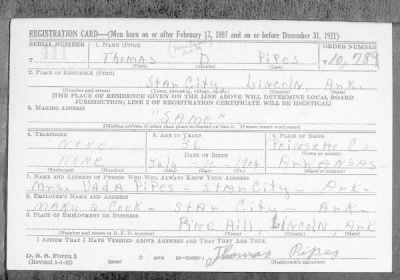 REGISTRATION CARD—(Men born on or after February 17, 1897 and on or before December 31, 1921)
SERIAL NUMBER 1. NAME (Print) ORDER NUMBER
Thomas D Pipes 10,789
2. PLACE OF RESIDENCE (Print)
Star City Lincoln Ark.
(Number and street) (Town, township, village, or city) (County) (State)
[THE PLACE OF RESIDENCE GIVEN ON THE LINE ABOVE WILL DETERMINE LOCAL BOARD
JURISDICTION; LINE 2 OF REGISTRATION CERTIFICATE WILL BE IDENTICAL]
3. MAILING ADDRESS
"Same"
[Mailing address if other than place indicated on line 2. If same insert word same]
4. TELEPHONE 5. AGE IN YEARS 6. PLACE OF BIRTH
None 36 Poinsette Co.
DATE OF BIRTH (Town or county)
None July 1904 Arkansas
7. NAME AND ADDRESS OF PERSON WHO WILL ALWAYS KNOW YOUR ADDRESS
Mrs. Dada Pipes - Star City - Ark.
8. EMPLOYER'S NAME AND ADDRESS
Cook - Star City - Ark.
9. PLACE OF EMPLOYMENT OR BUSINESS
Pine Hill, Lincoln, Ark
(Number and street or R. F. D. number) (Town) (County) (State)
I AFFIRM THAT I HAVE VERIFIED ABOVE ANSWERS AND THAT THEY ARE TRUE.
D. S. S. Form 1
(Revised 1-1-42) (over) Thomas Pipes
(Registrant's signature)